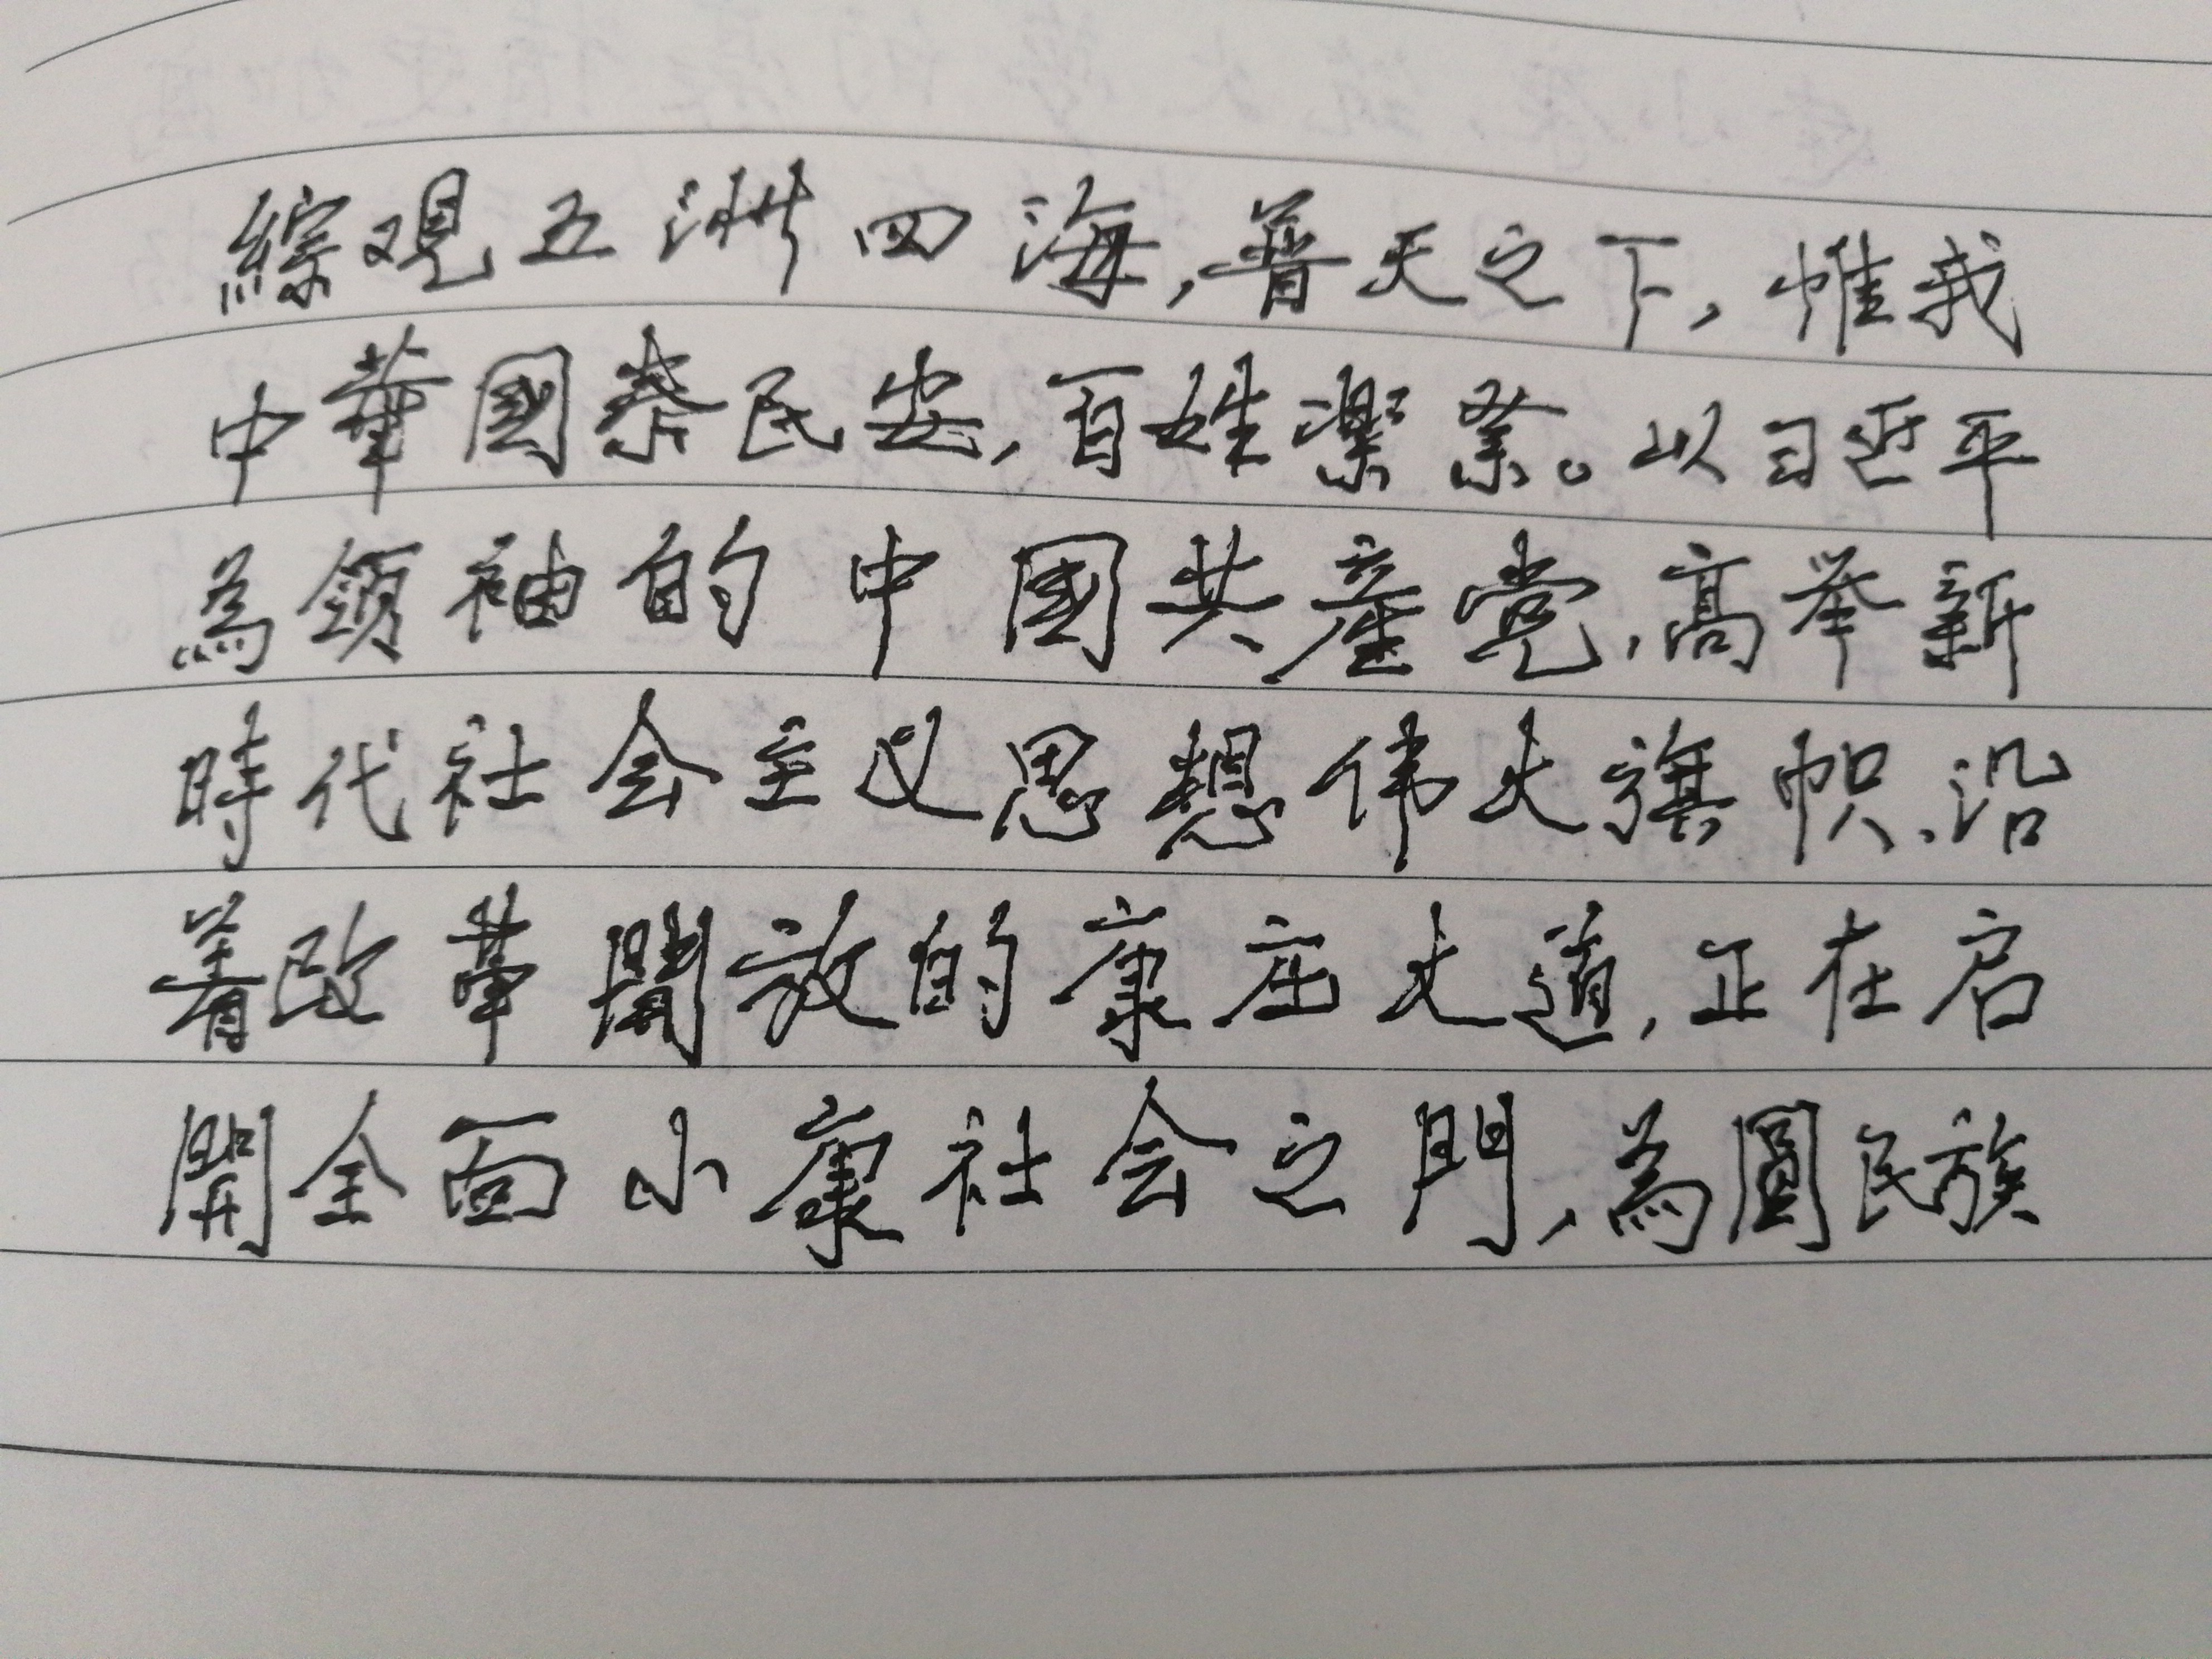 綜观五洲四海,普天之下,惟我
中華國泰民安,百姓樂業。以习近平
為領袖的中國共產党,高举新
時代社会主义思想伟大旗帜,沿
着改革開放的康庄大道,正在启
開全面小康社会之門,為圓民族